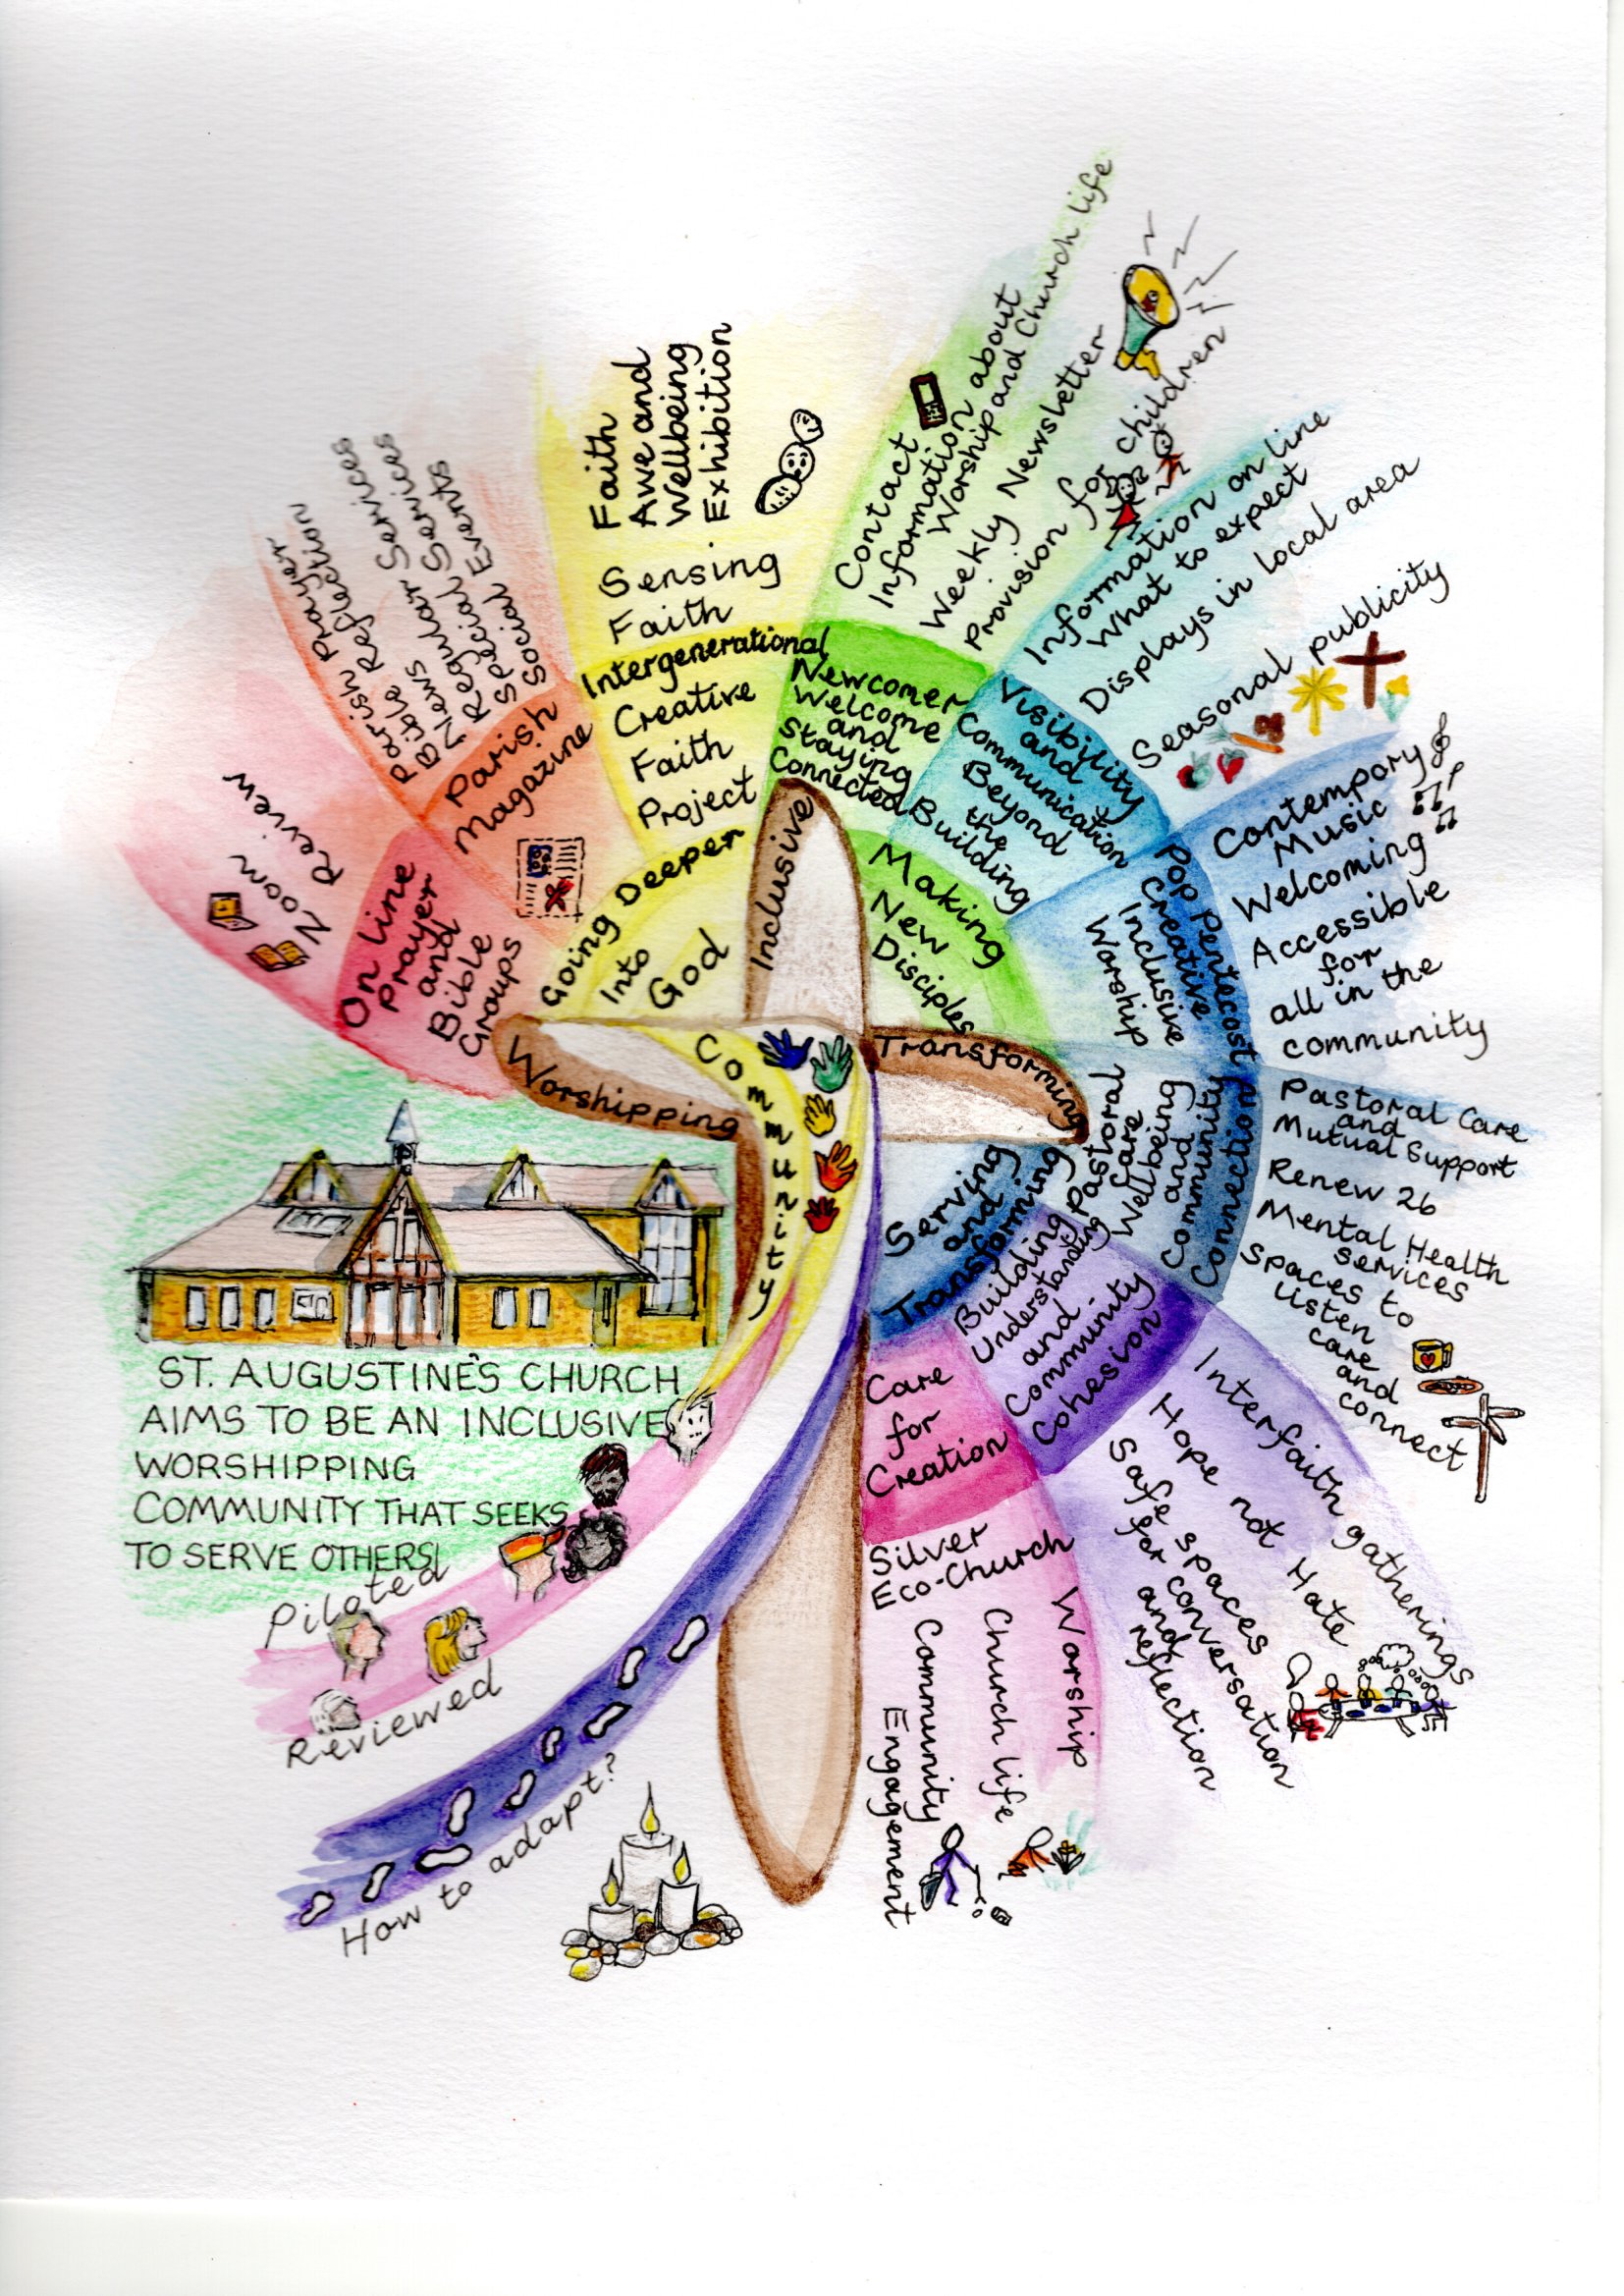 Inclusive
Worshipping
Transforming
Community
Going Deeper
Into
God
Making
New
Disciples
Serving
and
Transforming
On line
Prayer
and
Bible
Groups
Zoom
Review
Parish
Magazine
Parish Prayer
Bible Reflection
News
Regular Services
Special Services
Social Events
Intergenerational
Creative
Faith
Project
Sensing
Faith
Faith
Awe and
Wellbeing
Exhibition
Newcomer
Welcome
and
Staying
Connected
Contact
Information about
Worship and Church life
Weekly Newsletter
Provision for children
Visibility
and
Communication
Beyond
the
Building
Information on line
What to expect
Displays in local area
Seasonal publicity
Pop Pentecost
Creative
Inclusive
Worship
Contempory
Music
Welcoming
Accessible
for
all in the
community
Pastoral
Care
Wellbeing
and
Community
Connection
Pastoral Care
and
Mutual Support
Renew 26
Mental Health
Services
Spaces to
listen
care
and
connect
Building
Understanding
and
Community
Cohesion
Interfaith gatherings
Hope not Hate
Safe spaces
for conversation
and
reflection
Care
for
Creation
Silver
Eco-Church
Worship
Church life
Community
Engagement
ST. AUGUSTINE'S CHURCH
AIMS TO BE AN INCLUSIVE
WORSHIPPING
COMMUNITY THAT SEEKS
TO SERVE OTHERS!
Piloted
Reviewed
How to adapt?